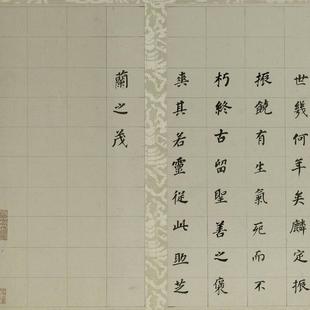 世幾何年矣麟定振
振饒有生氣死而不
朽終古留聖善之褒
爽其若靈從此毗芝
蘭之茂